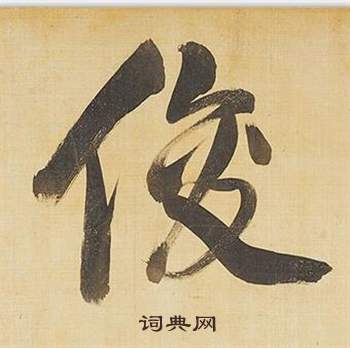 俊
词典网